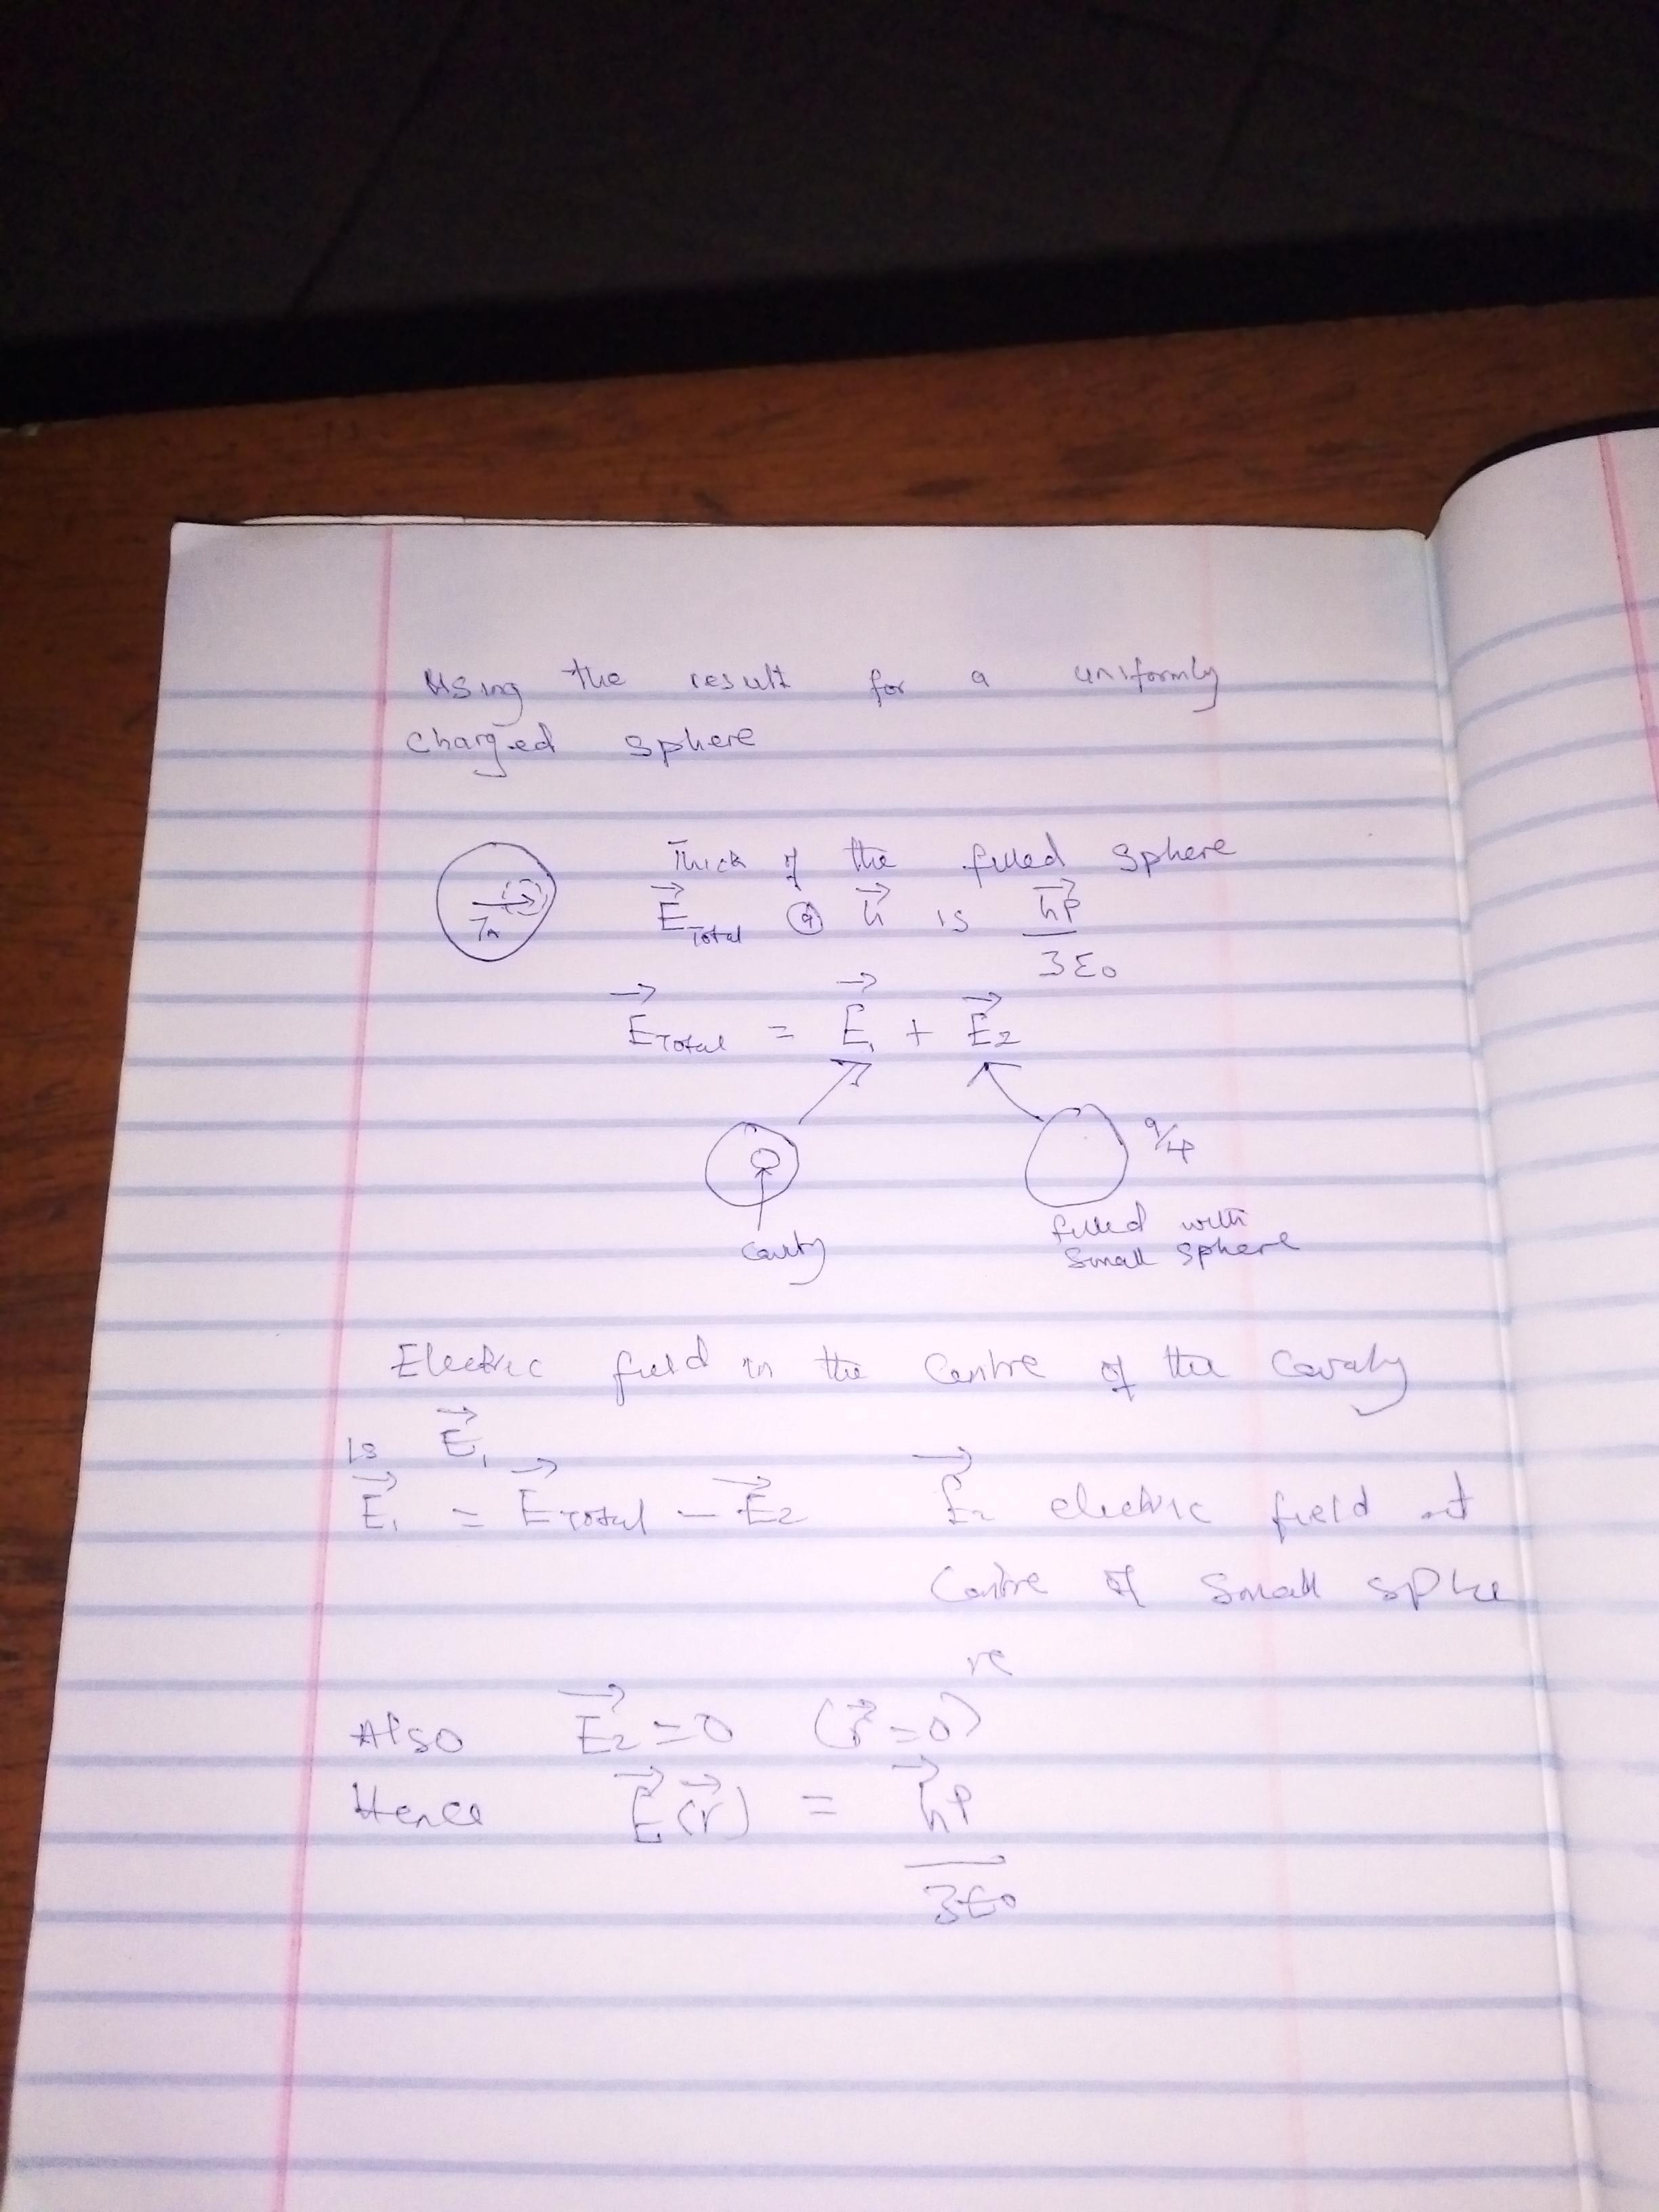 Using the result for a uniformly
charged sphere
Think of the filled sphere
E⃗Total @ h⃗ is h⃗ρ
3ε₀
E⃗Total = E⃗₁ + E⃗₂
cavity
filled with
small sphere
Electric field in the Centre of the Cavaty
is E⃗₁
E⃗₁ = E⃗Total − E⃗₂ E⃗₂ electric field at
Centre of small sphe
re
Also E⃗₂ = 0 (r⃗ = 0)
Hence E⃗(r⃗) = h⃗ρ
3ε₀